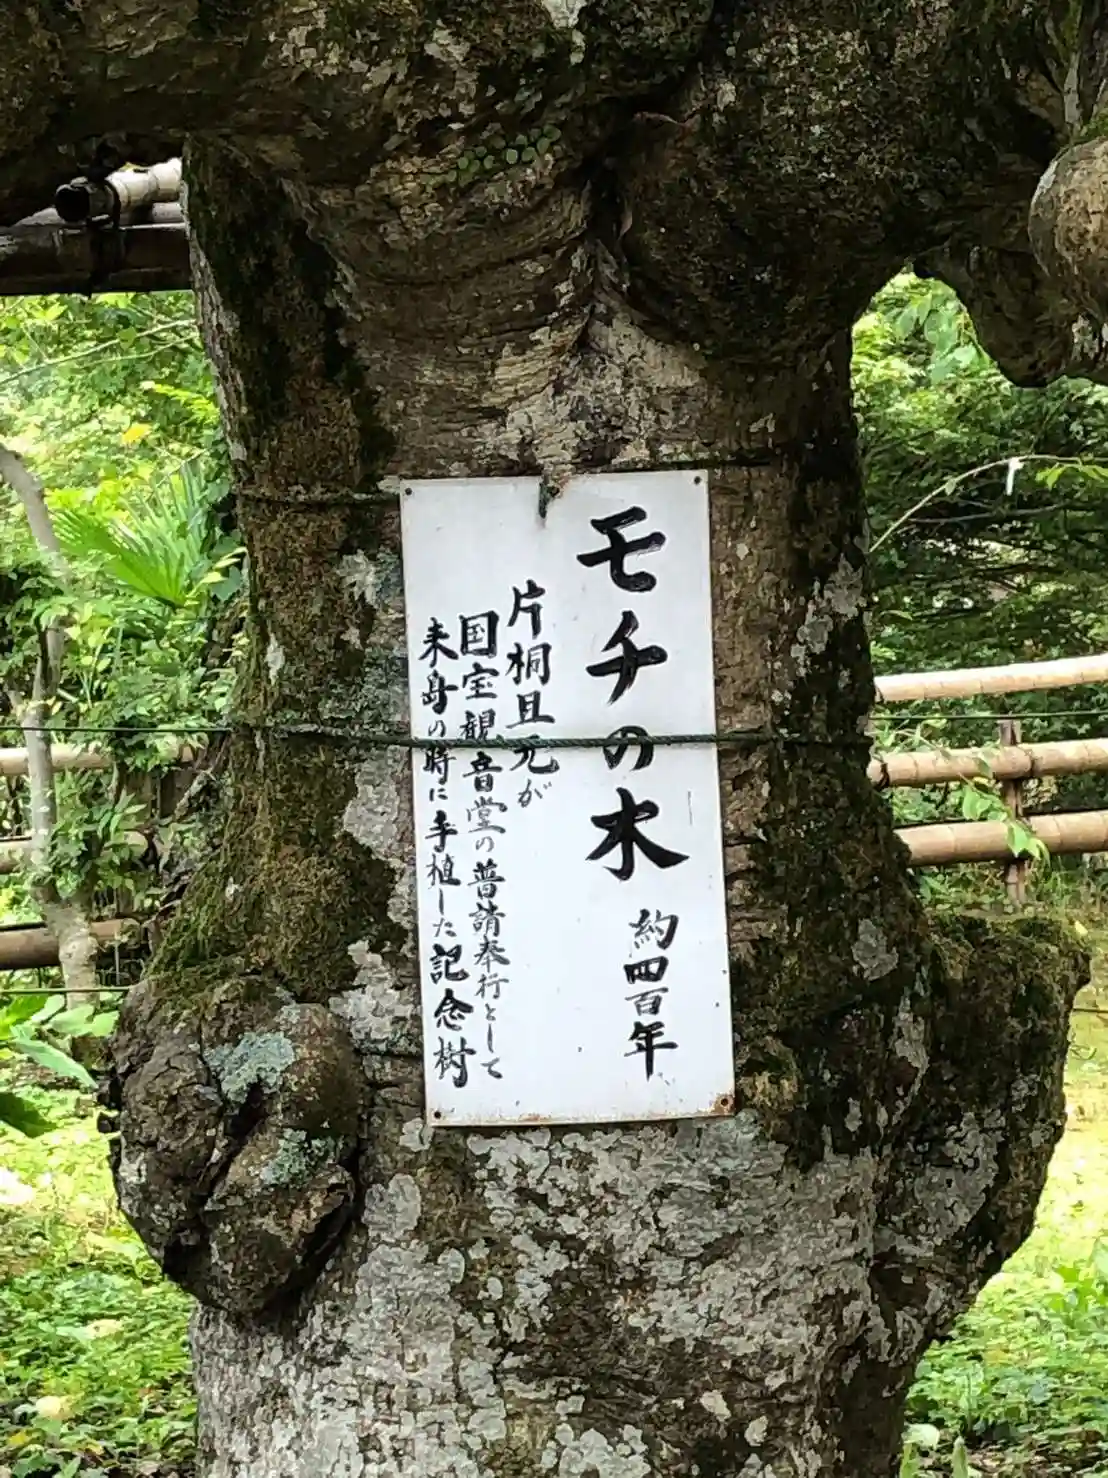 モチの木 約四百年
片桐且元が
国宝観音堂の普請奉行として
来島の時に手植した記念樹